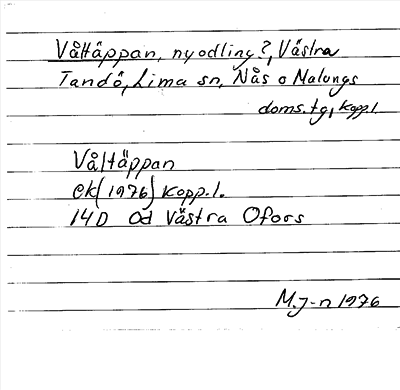 Våltäppan, nyodling?, Västra
Tandö, Lima sn, Nås o Malungs
doms.tg, Kopp.l.
Våltäppan
ek(1976) Kopp.l.
14D Od Västra Ofors
M.J-n 1976